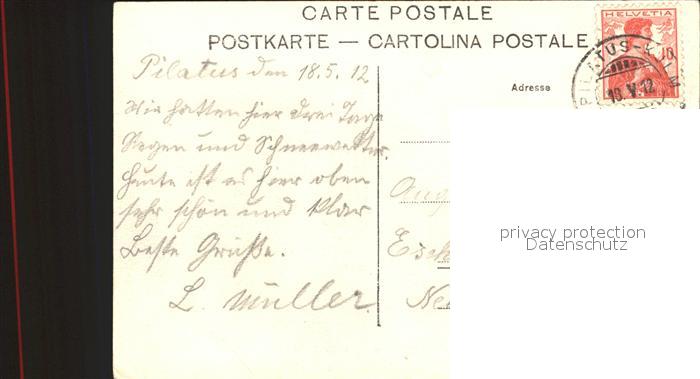 CARTE POSTALE
POSTKARTE — CARTOLINA POSTALE
HELVETIA
10
PILATUS-KULM
18.V.12
Adresse
Pilatus den 18.5.12
Wir hatten hier drei Tage
Regen und Schneewetter.
Heute ist es hier oben
sehr schön und klar
Beste Grüße.
L. Müller
Aug
Esch
Ne
privacy protection
Datenschutz